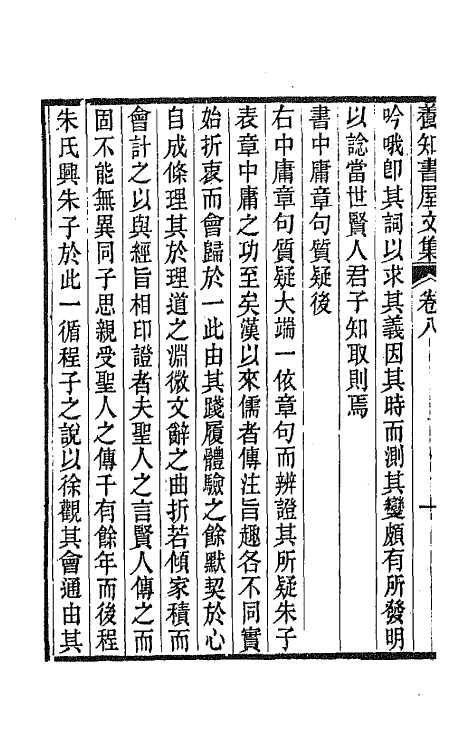 養知書屋文集 卷八 十
吟哦卽其詞以求其義因其時而測其變頗有所發明
以諗當世賢人君子知取則焉
書中庸章句質疑後
右中庸章句質疑大端一依章句而辨證其所疑朱子
表章中庸之功至矣漢以來儒者傳注旨趣各不同實
始折衷而會歸於一此由其踐履體驗之餘默契於心
自成條理其於理道之淵微文辭之曲折若傾家積而
會計之以與經旨相印證者夫聖人之言賢人傳之而
固不能無異同子思親受聖人之傳千有餘年而後程
朱氏興朱子於此一循程子之說以徐觀其會通由其